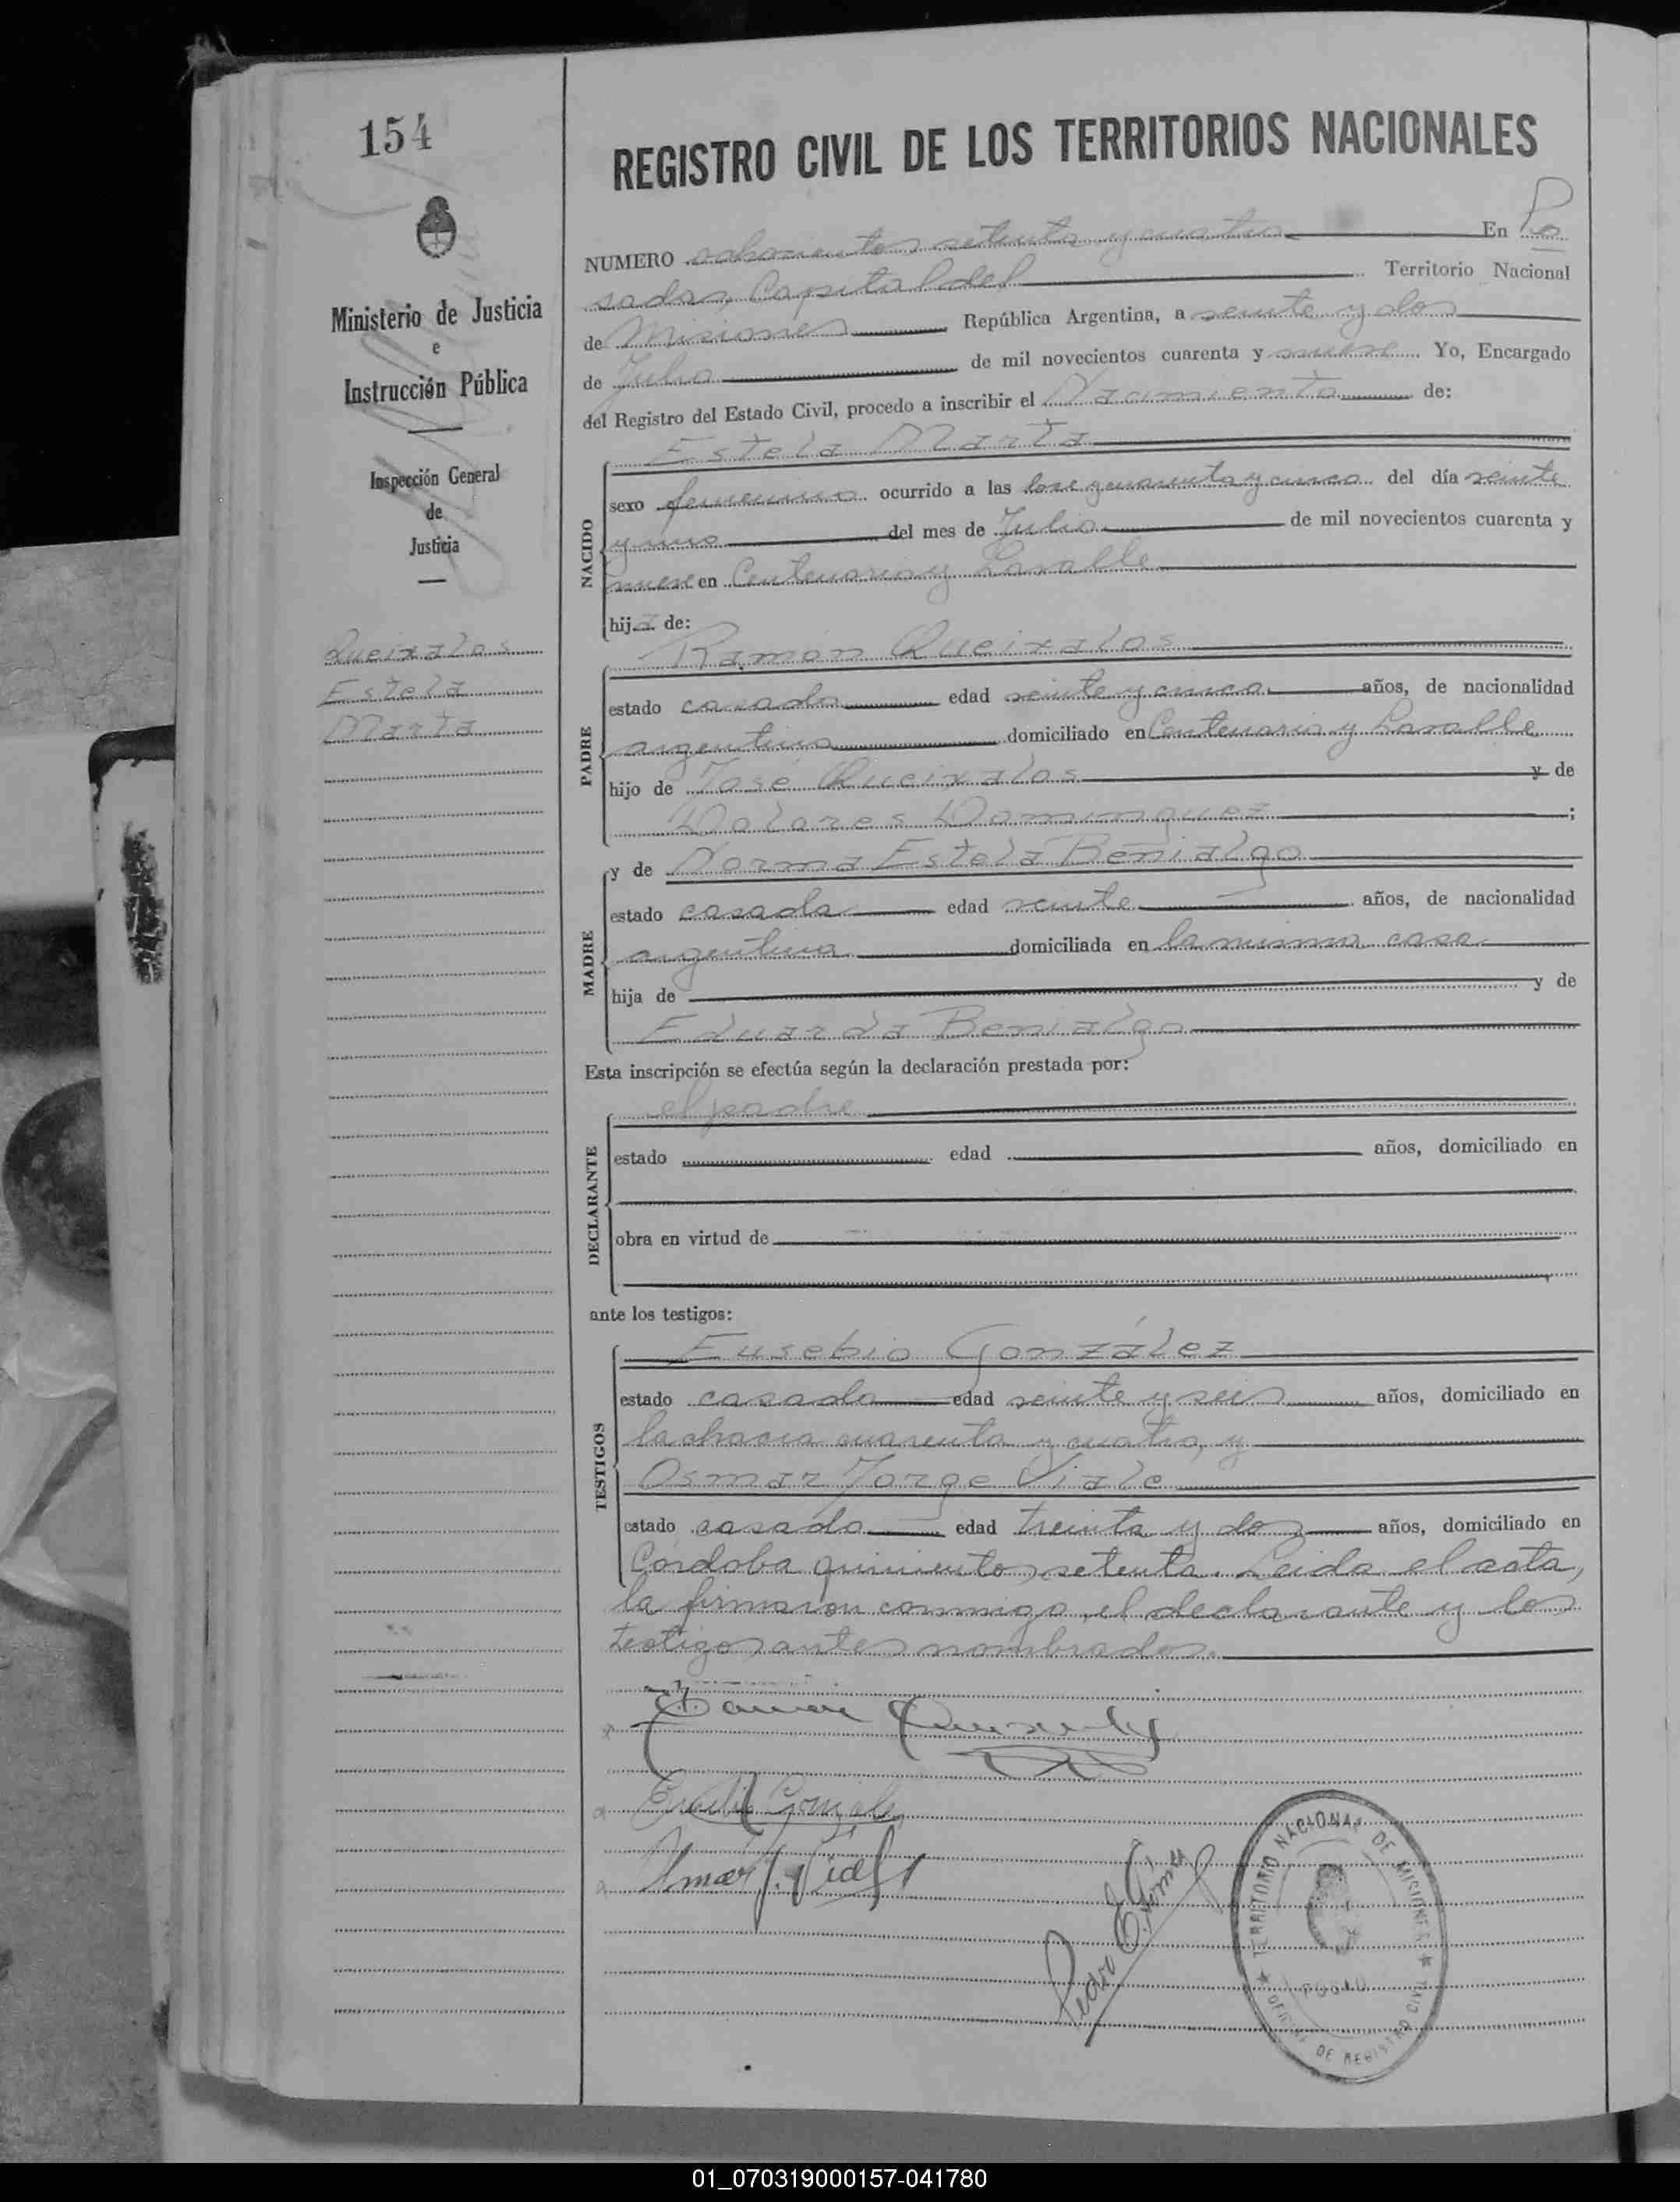 154
REGISTRO CIVIL DE LOS TERRITORIOS NACIONALES
NUMERO ochocientos setenta y cuatro En Po
sadas, Capital del Territorio Nacional
de Misiones República Argentina, a veinte y dos
de Julio de mil novecientos cuarenta y nueve Yo, Encargado
del Registro del Estado Civil, procedo a inscribir el Nacimiento de:
Estela Marta
NACIDO
sexo femenino ocurrido a las doce y cuarenta y cinco del día veinte
y uno del mes de Julio de mil novecientos cuarenta y
nueve en Centenario y Lavalle
hija de:
Ministerio de Justicia
e
Instrucción Pública
Inspección General
de
Justicia
Queixalos
Estela
Marta
PADRE
Ramón Queixalos
estado casado edad veinte y cinco años, de nacionalidad
argentino domiciliado en Centenario y Lavalle
hijo de José Queixalos y de
Dolores Dominguez ;
MADRE
y de Norma Estela Benialgo
estado casada edad veinte años, de nacionalidad
argentina domiciliada en la misma casa
hija de y de
Eduarda Benialgo
Esta inscripción se efectúa según la declaración prestada por:
DECLARANTE
el padre
estado edad años, domiciliado en
obra en virtud de
ante los testigos:
TESTIGOS
Eusebio González
estado casado edad veinte y seis años, domiciliado en
la chacra cuarenta y cuatro, y
Osmar Jorge Viale
estado casado edad treinta y dos años, domiciliado en
Córdoba quinientos setenta. Leida el acta,
la firmaron conmigo, el declarante y los
testigos antes nombrados.
Ramon
Eusebio Gonzalez
Osmar J. Viale
Pedro E.
TERRITORIO NACIONAL DE MISIONES
OFICINA DE REGISTRO CIVIL
01_070319000157-041780